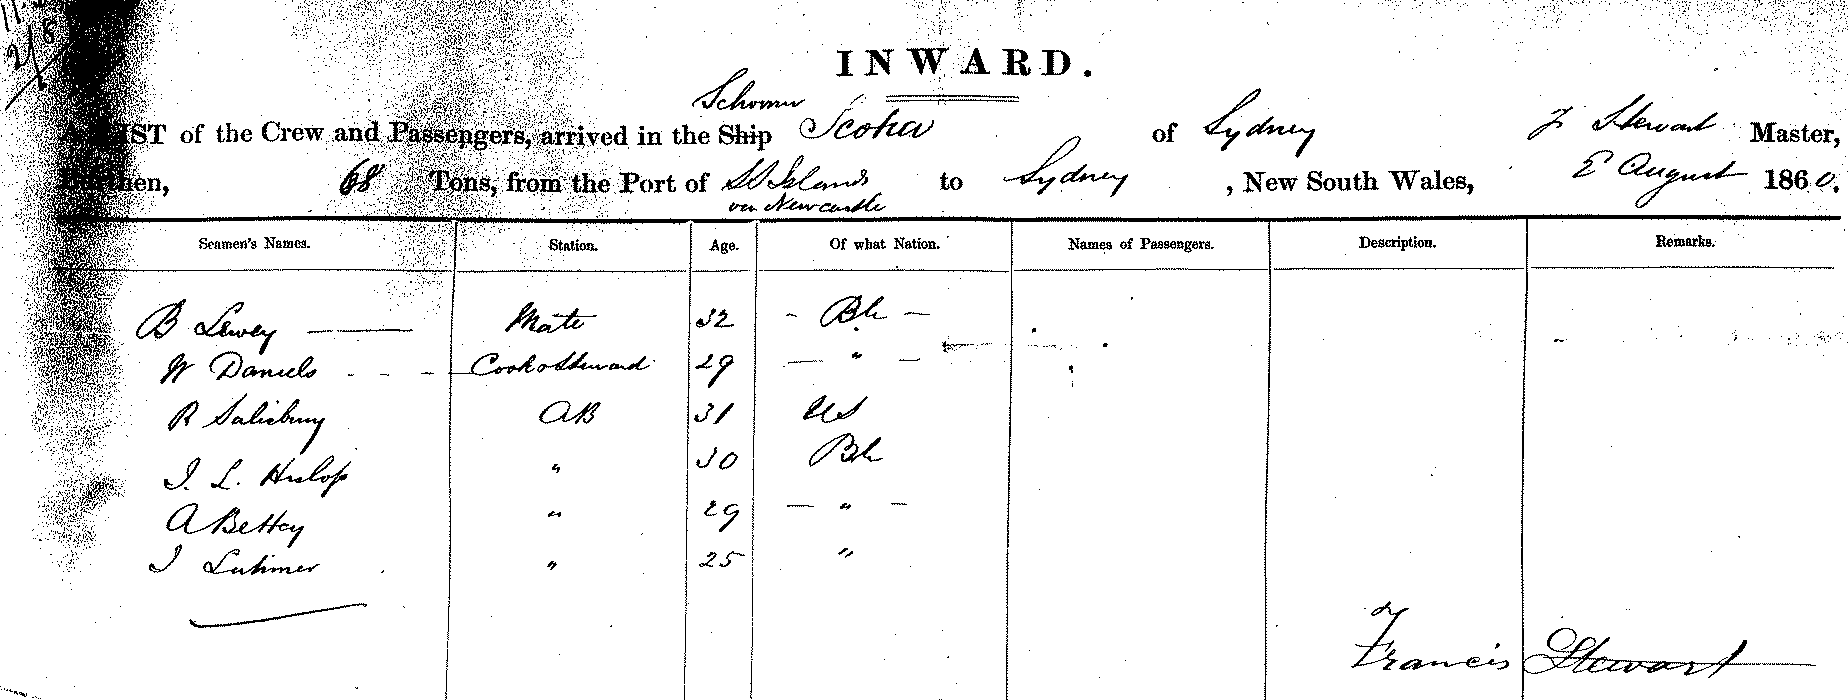 INWARD.
Schooner
LIST of the Crew and Passengers, arrived in the Ship Scotia of Sydney F Stewart Master,
Burthen, 68 Tons, from the Port of SS Islands to Sydney, New South Wales, August 1860.
via Newcastle
Seamen's Names. Station. Age. Of what Nation. Names of Passengers. Description. Remarks.
B Lewey Mate 32 - Bh -
W Daniels Cook & Steward 29 - " -
R Salisbury AB 31 US
J. L. Hislop " 30 Bh
A Bettey " 29 - " -
J Latimer " 25 "
Francis Stewart